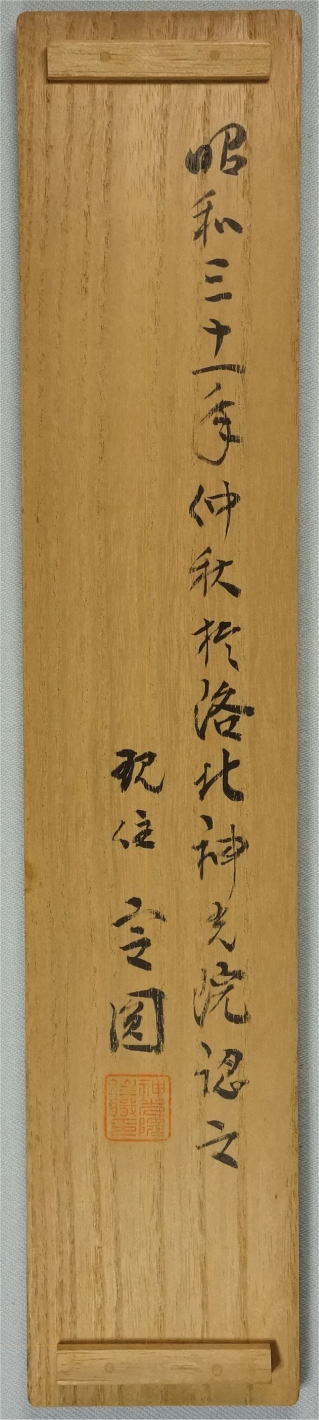 昭和三十一年仲秋於洛北神光院認之
現住 圓
神光院